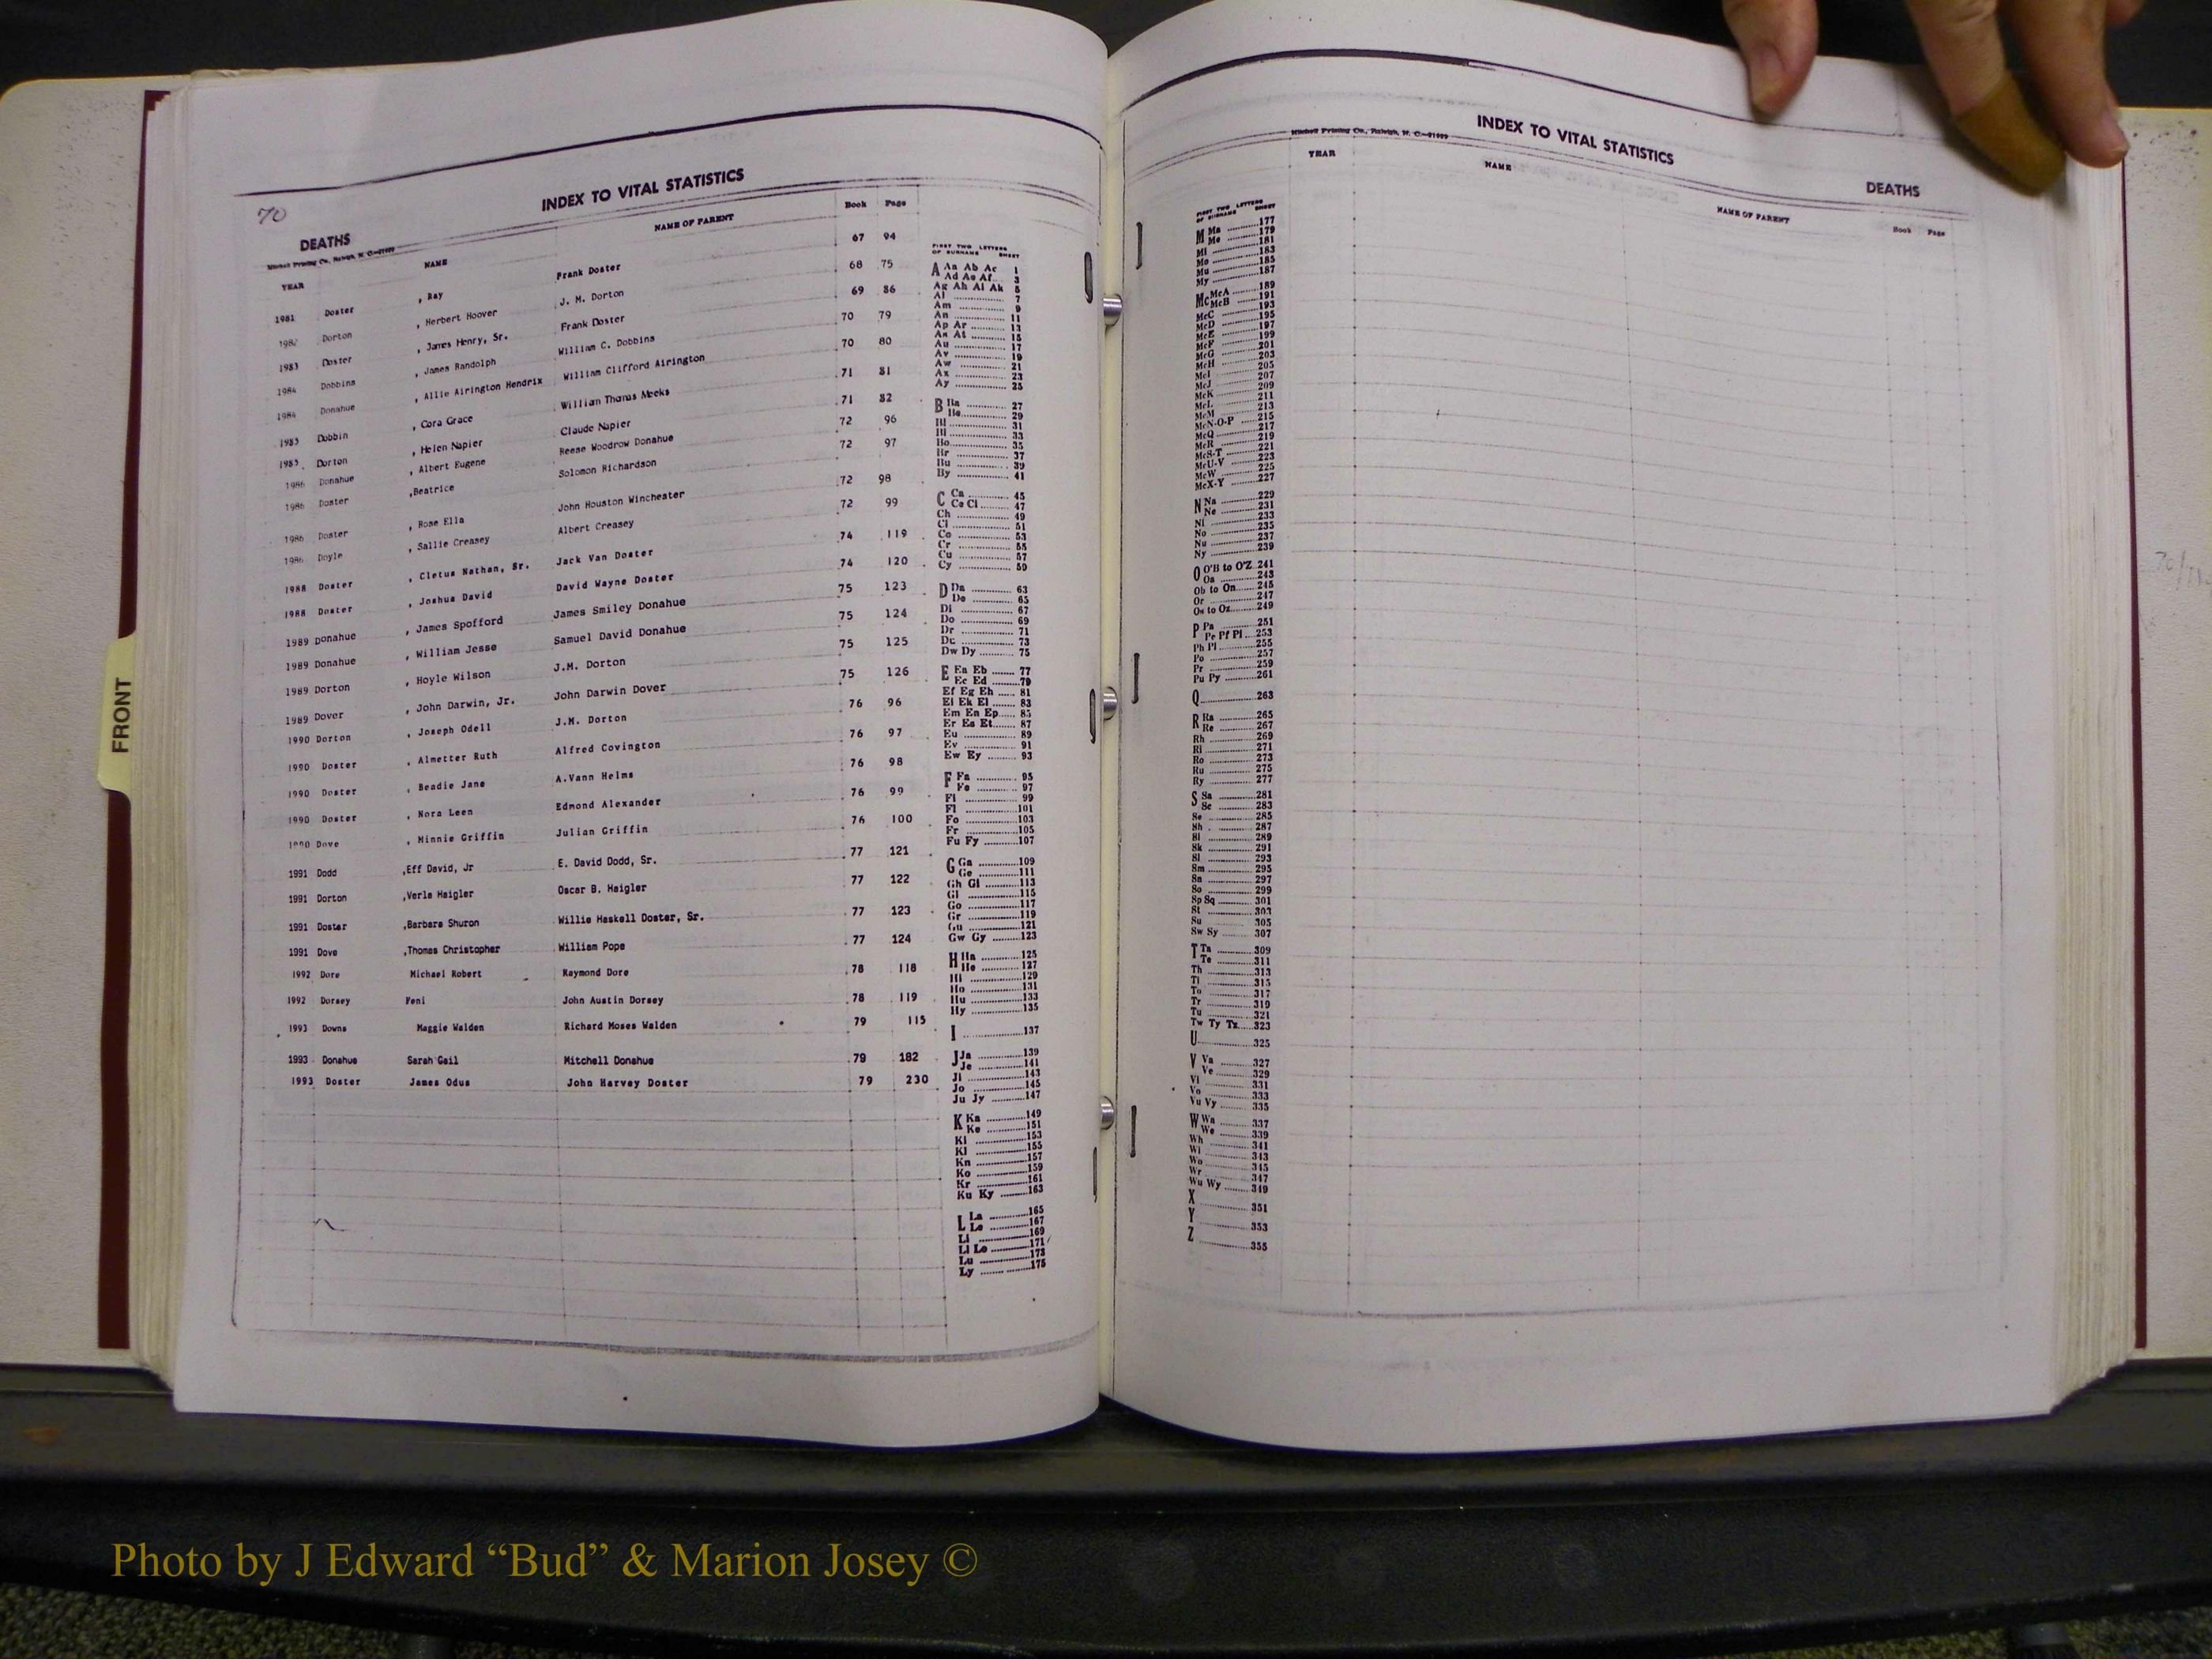 70
INDEX TO VITAL STATISTICS
DEATHS
Mitchell Printing Co., Raleigh, N. C.
YEAR NAME NAME OF PARENT Book Page
1981 Doster , Ray Frank Doster 67 94
1982 Dorton , Herbert Hoover J. M. Dorton 68 75
1983 Doster , James Henry, Sr. Frank Doster 69 86
1984 Dobbins , James Randolph William C. Dobbins 70 79
1984 Donahue , Allie Airington Hendrix William Clifford Airington 70 80
1985 Dobbin , Cora Grace William Thomas Meeks 71 81
1985 Dorton , Helen Napier Claude Napier 71 82
1986 Donahue , Albert Eugene Reese Woodrow Donahue 72 96
1986 Doster ,Beatrice Solomon Richardson 72 97
1986 Doster , Rose Ella John Houston Winchester 72 98
1986 Doyle , Sallie Creasey Albert Creasey 72 99
1988 Doster , Cletus Nathan, Sr. Jack Van Doster 74 119
1988 Doster , Joshua David David Wayne Doster 74 120
1989 Donahue , James Spofford James Smiley Donahue 75 123
1989 Donahue , William Jesse Samuel David Donahue 75 124
1989 Dorton , Hoyle Wilson J.M. Dorton 75 125
1989 Dover , John Darwin, Jr. John Darwin Dover 75 126
1990 Dorton , Joseph Odell J.M. Dorton 76 96
1990 Doster , Almetter Ruth Alfred Covington 76 97
1990 Doster , Beadie Jane A.Vann Helms 76 98
1990 Doster , Nora Leen Edmond Alexander 76 99
1990 Dove , Minnie Griffin Julian Griffin 76 100
1991 Dodd ,Eff David, Jr E. David Dodd, Sr. 77 121
1991 Dorton ,Verla Haigler Oscar B. Haigler 77 122
1991 Doster ,Barbara Shuron Willie Haskell Doster, Sr. 77 123
1991 Dove ,Thomas Christopher William Pope 77 124
1992 Dore Michael Robert Raymond Dore 78 118
1992 Dorsey Feni John Austin Dorsey 78 119
1993 Downs Maggie Walden Richard Moses Walden 79 115
1993 Donahue Sarah Gail Mitchell Donahue 79 182
1993 Doster James Odus John Harvey Doster 79 230
FIRST TWO LETTERS
OF SURNAME SHEET
A Aa Ab Ac 1
Ad Ae Af 3
Ag Ah Ai Ak 5
Al 7
Am 9
An 11
Ap Ar 13
As At 15
Au 17
Av 19
Aw 21
Ax 23
Ay 25
B Ba 27
Be 29
Bi 31
Bl 33
Bo 35
Br 37
Bu 39
By 41
C Ca 45
Ce Ci 47
Ch 49
Cl 51
Co 53
Cr 55
Cu 57
Cy 59
D Da 63
De 65
Di 67
Do 69
Dr 71
Du 73
Dw Dy 75
E Ea Eb 77
Ec Ed 79
Ef Eg Eh 81
Ei Ek El 83
Em En Ep 85
Er Es Et 87
Eu 89
Ev 91
Ew Ey 93
F Fa 95
Fe 97
Fi 99
Fl 101
Fo 103
Fr 105
Fu Fy 107
G Ga 109
Ge 111
Gh Gi 113
Gl 115
Go 117
Gr 119
Gu 121
Gw Gy 123
H Ha 125
He 127
Hi 129
Ho 131
Hu 133
Hy 135
I 137
J Ja 139
Je 141
Ji 143
Jo 145
Ju Jy 147
K Ka 149
Ke 151
Ki 153
Kl 155
Kn 157
Ko 159
Kr 161
Ku Ky 163
L La 165
Le 167
Li 169
Ll Lo 171
Lu 173
Ly 175
INDEX TO VITAL STATISTICS
Mitchell Printing Co., Raleigh, N. C.
DEATHS
YEAR NAME NAME OF PARENT Book Page
FIRST TWO LETTERS
OF SURNAME SHEET
M Ma 177
Me 179
Mi 181
Mo 183
Mu 185
My 187
Mc McA 189
McB 191
McC 193
McD 195
McE 197
McF 199
McG 201
McH 203
McI 205
McJ 207
McK 209
McL 211
McM 213
McN-O-P 215
McQ 217
McR 219
McS-T 221
McU-V 223
McW 225
McX-Y 227
N Na 229
Ne 231
Ni 233
No 235
Nu 237
Ny 239
O O'B to O'Z 241
Oa 243
Ob to On 245
Or 247
Os to Oz 249
P Pa 251
Pe Pf Pi 253
Ph Pl 255
Po 257
Pr 259
Pu Py 261
Q 263
R Ra 265
Re 267
Rh 269
Ri 271
Ro 273
Ru 275
Ry 277
S Sa 281
Sc 283
Se 285
Sh 287
Si 289
Sk 291
Sl 293
Sm 295
Sn 297
So 299
Sp Sq 301
St 303
Su 305
Sw Sy 307
T Ta 309
Te 311
Th 313
Ti 315
To 317
Tr 319
Tu 321
Tw Ty Tz 323
U 325
V Va 327
Ve 329
Vi 331
Vo 333
Vu Vy 335
W Wa 337
We 339
Wh 341
Wi 343
Wo 345
Wr 347
Wu Wy 349
X 351
Y 353
Z 355
FRONT
Photo by J Edward “Bud” & Marion Josey ©